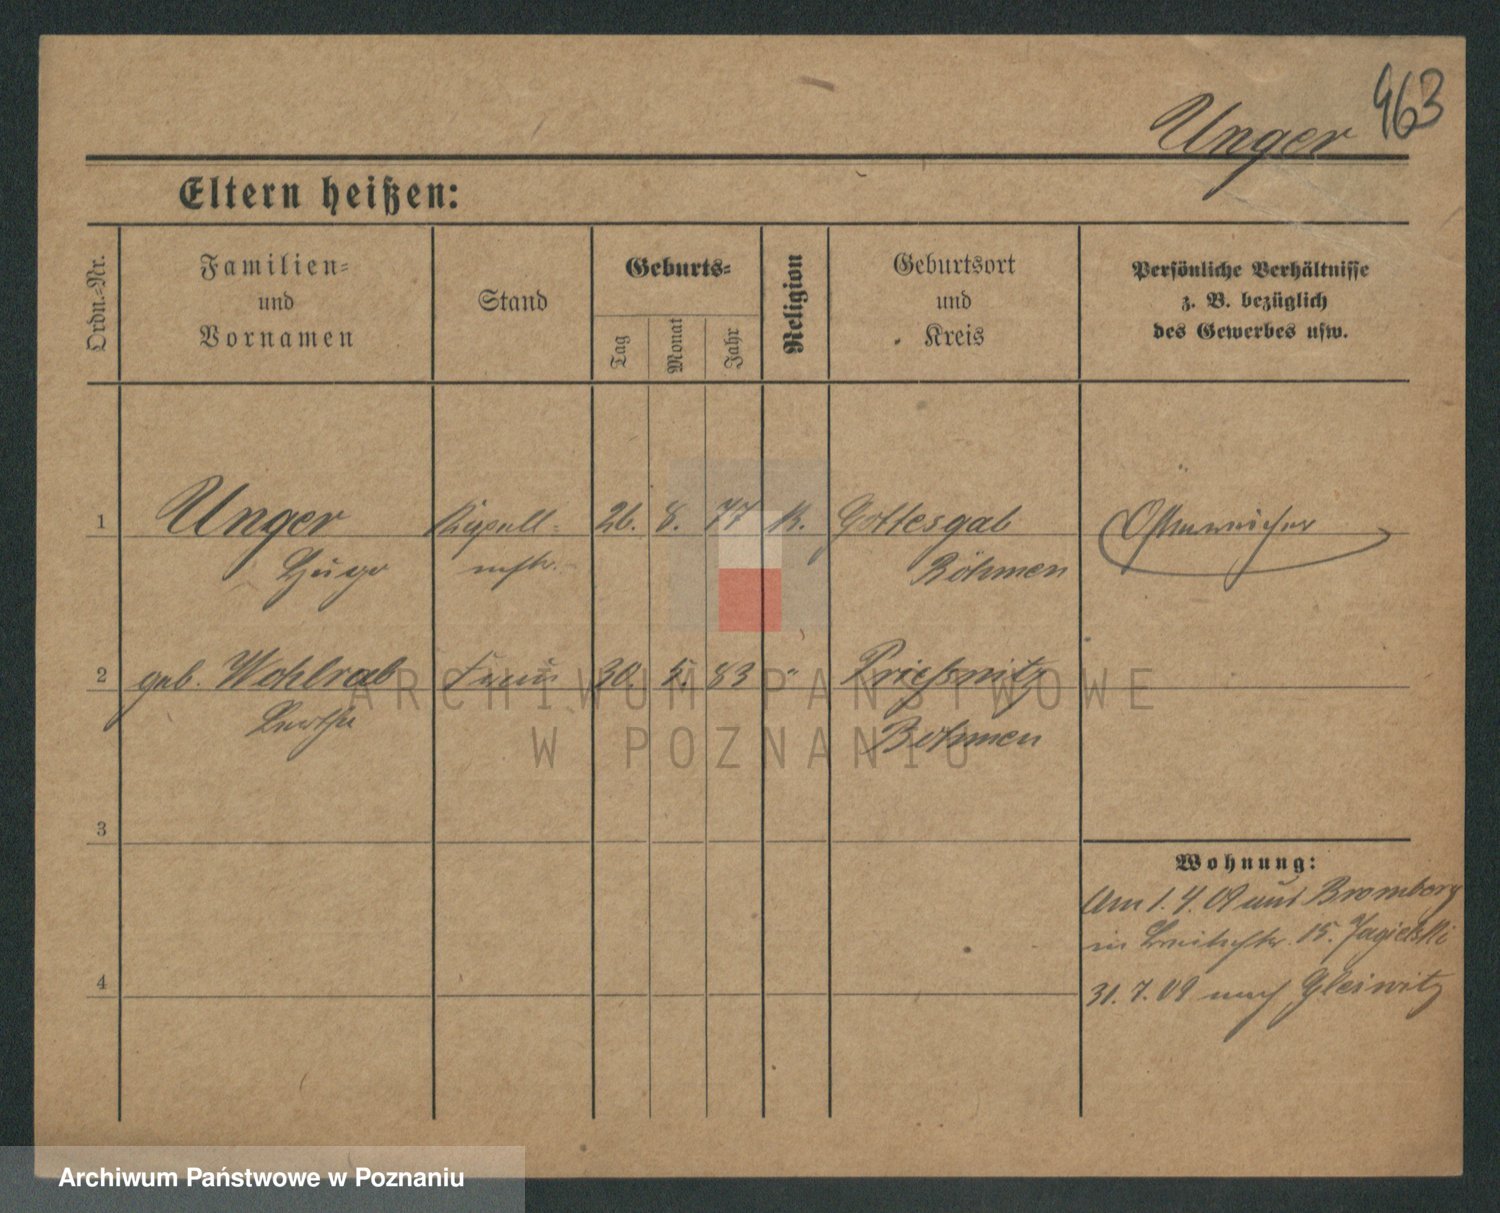 963
Unger
Eltern heißen:
Ordn.-Nr.
Familien-
und
Vornamen
Stand
Geburts-
Tag
Monat
Jahr
Religion
Geburtsort
und
Kreis
Persönliche Verhältnisse
z. B. bezüglich
des Gewerbes usw.
1 Unger Kapell- 26. 8. 77 K. Gottesgab Österreicher
Hugo mstr. Böhmen
2 geb. Wohlrab Frau 30. 5. 83 " Prießnitz
Bertha Böhmen
3
Wohnung:
Am 1. 4. 09 aus Bromberg
in Breitestr. 15. Jagielski
4
31. 7. 09 nach Gleiwitz
ARCHIWUM PAŃSTWOWE
W POZNANIU
Archiwum Państwowe w Poznaniu